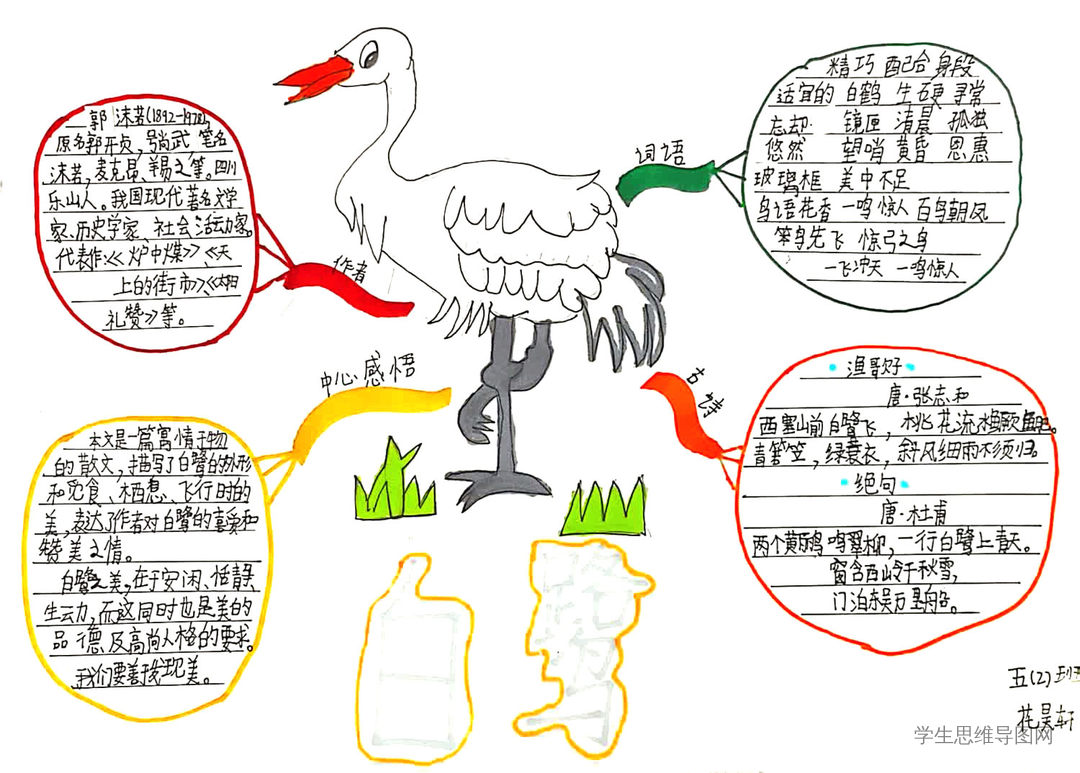 郭沫若(1892-1978),
原名郭开贞,号尚武,笔名
沫若,麦克昂、羊易之等。四川
乐山人。我国现代著名文学
家、历史学家、社会活动家。
代表作:《炉中煤》《天
上的街市》《太阳
礼赞》等。
作者
中心感悟
本文是一篇寓情于物
的散文,描写了白鹭的外形
和觅食、栖息、飞行时的
美,表达了作者对白鹭的喜爱和
赞美之情。
白鹭之美,在于安闲、恬静与
生动,而这同时也是美的
品德及高尚人格的要求。
我们要善于发现美。
词语
精巧 配合 身段
适宜的 白鹤 生硬 寻常
忘却 镜匣 清晨 孤独
悠然 望哨 黄昏 恩惠
玻璃框 美中不足
鸟语花香 一鸣惊人 百鸟朝凤
笨鸟先飞 惊弓之鸟
一飞冲天 一鸣惊人
古诗
渔歌好
唐·张志和
西塞山前白鹭飞,桃花流水鳜鱼肥。
青箬笠,绿蓑衣,斜风细雨不须归。
绝句
唐·杜甫
两个黄鹂鸣翠柳,一行白鹭上青天。
窗含西岭千秋雪,
门泊东吴万里船。
白鹭
五(2)班
花昊轩
学生思维导图网